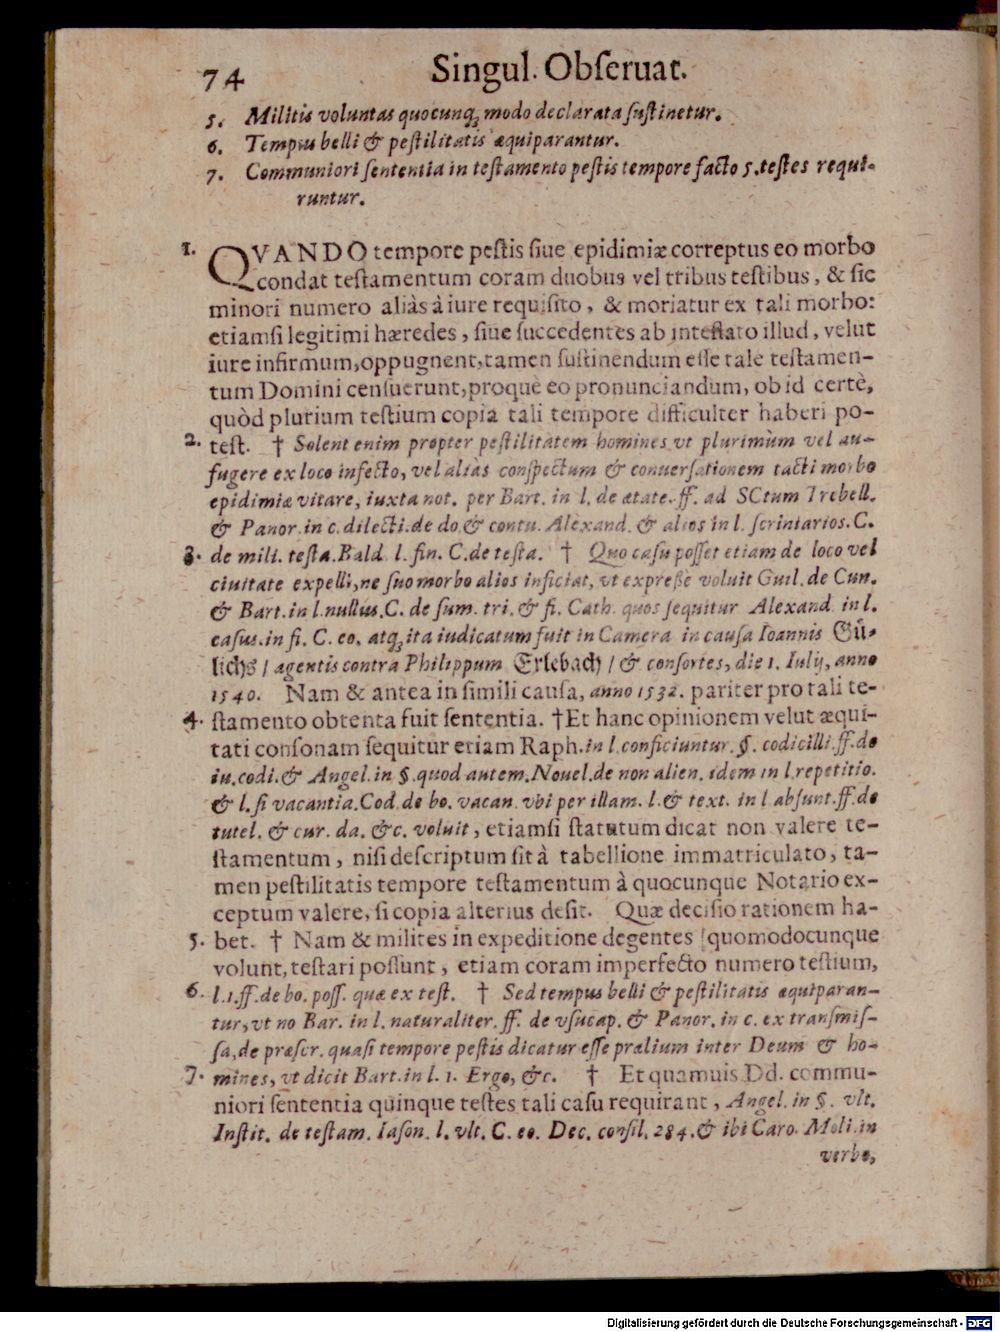 74 Singul. Obſeruat.
5. Militis voluntas quocunq; modo declarata ſuſtinetur.
6. Tempus belli & peſtilitatis æquiparantur.
7. Communiori ſententia in teſtamento peſtis tempore facto 5. teſtes requi-
runtur.
1. QVANDO tempore peſtis ſiue epidimiæ correptus eo morbo
condat teſtamentum coram duobus vel tribus teſtibus, & ſic
minori numero aliàs à iure requiſito, & moriatur ex tali morbo:
etiamſi legitimi hæredes, ſiue ſuccedentes ab inteſtato illud, velut
iure infirmum, oppugnent, tamen ſuſtinendum eſſe tale teſtamen-
tum Domini cenſuerunt, proquè eo pronunciandum, ob id certè,
quòd plurium teſtium copia tali tempore difficulter haberi po-
2. teſt. † Solent enim propter peſtilitatem homines vt plurimùm vel au-
fugere ex loco infecto, vel aliàs conſpectum & conuerſationem tacti morbo
epidimiæ vitare, iuxta not. per Bart. in l. de ætate. ff. ad SCtum Trebell.
& Panor. in c. dilecti. de do. & contu. Alexand. & alios in l. ſcriniarios. C.
3. de mili. teſta. Bald. l. fin. C. de teſta. † Quo caſu poſſet etiam de loco vel
ciuitate expelli, ne ſuo morbo alios inficiat, vt expreße voluit Guil. de Cun.
& Bart. in l. nullus. C. de ſum. tri. & fi. Cath. quos ſequitur Alexand. in l.
caſus. in fi. C. eo. atq; ita iudicatum fuit in Camera in cauſa Ioannis Gü-
lichs / agentis contra Philippum Erlebach / & conſortes, die 1. Iulij, anno
1540. Nam & antea in ſimili cauſa, anno 1532. pariter pro tali te-
4. ſtamento obtenta fuit ſententia. † Et hanc opinionem velut æqui-
tati conſonam ſequitur etiam Raph. in l. conficiuntur. §. codicilli. ff. de
iu. codi. & Angel. in §. quod autem. Nouel. de non alien. idem in l. repetitio.
& l. ſi vacantia. Cod. de bo. vacan. vbi per illam. l. & text. in l. abſunt. ff. de
tutel. & cur. da. &c. voluit, etiamſi ſtatutum dicat non valere te-
ſtamentum, niſi deſcriptum ſit à tabellione immatriculato, ta-
men peſtilitatis tempore teſtamentum à quocunque Notario ex-
ceptum valere, ſi copia alterius deſit. Quæ deciſio rationem ha-
5. bet. † Nam & milites in expeditione degentes quomodocunque
volunt, teſtari poſſunt, etiam coram imperfecto numero teſtium,
6. l. 1. ff. de bo. poſſ. quæ ex teſt. † Sed tempus belli & peſtilitatis æquiparan-
tur, vt no Bar. in l. naturaliter. ff. de vſucap. & Panor. in c. ex tranſmiſ-
ſa, de præſcr. quaſi tempore peſtis dicatur eſſe prælium inter Deum & ho-
7. mines, vt dicit Bart. in l. 1. Ergo, &c. † Et quamuis Dd. commu-
niori ſententia quinque teſtes tali caſu requirant, Angel. in §. vlt.
Inſtit. de teſtam. Iaſon. l. vlt. C. eo. Dec. conſil. 284. & ibi Caro. Moli. in
verbo,
Digitalisierung gefördert durch die Deutsche Forschungsgemeinschaft - DFG